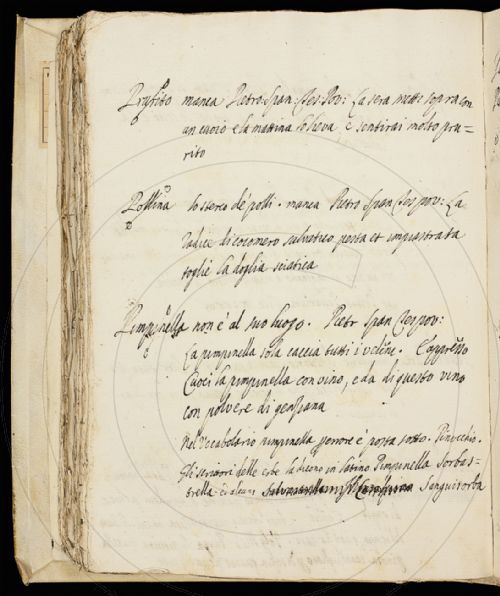 Prurito manca Pietro Span: Tes: Pov: La sera metti sopra con
un cuoio e la mattina lo lieva, e sentirai molto pru=
rito
Pollina lo sterco de' polli. manca Pietro Span Tes pov: La
radice di cocomero salvatico pesta et impiastrata
toglie la doglia sciatica
Pimpinella non è al suo luogo. Pietr Span Tes pov:
La pimpinella sola caccia tutti i veleni.
Cuoci la pimpinella con vino, e da di questo vino
con polvere di genziana
Nel Vocabolario pimpinella per errore è posta sotto. Pinocchio.
Gli scrittori delle erbe la dicono in latino Pimpinella Sorbas=
trella ed alcuni Sanguisorba